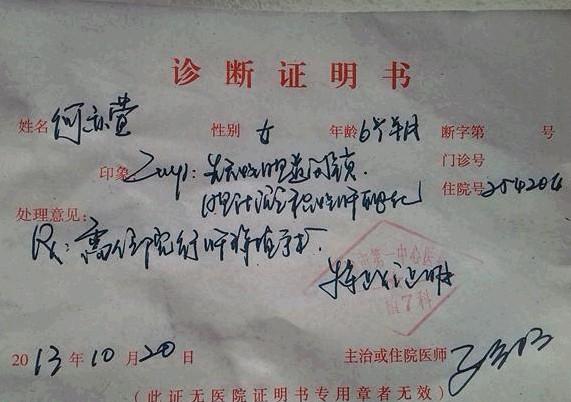 诊断证明书
姓名 何亦萱 性别 女 年龄 6个月 断字第 号
印象 Imp: 先天性胆道闭锁. 门诊号
胆汁淤积性肝硬化 住院号 254204
处理意见:
Rx: 需住院行肝移植手术.
特此证明
第一中心医
植7科
2013年10月20日 主治或住院医师
(此证无医院证明书专用章者无效)